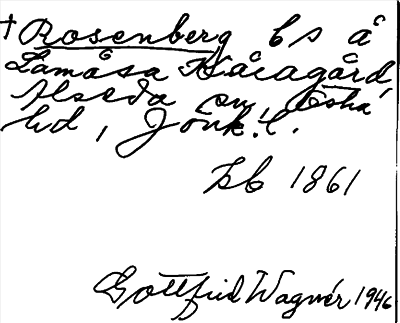 † Rosenberg bs å
Lamåsa Kåragård,
Alseda sn, Östra
hd, Jönk. l.
kb 1861
Gottfrid Wagnér 1946